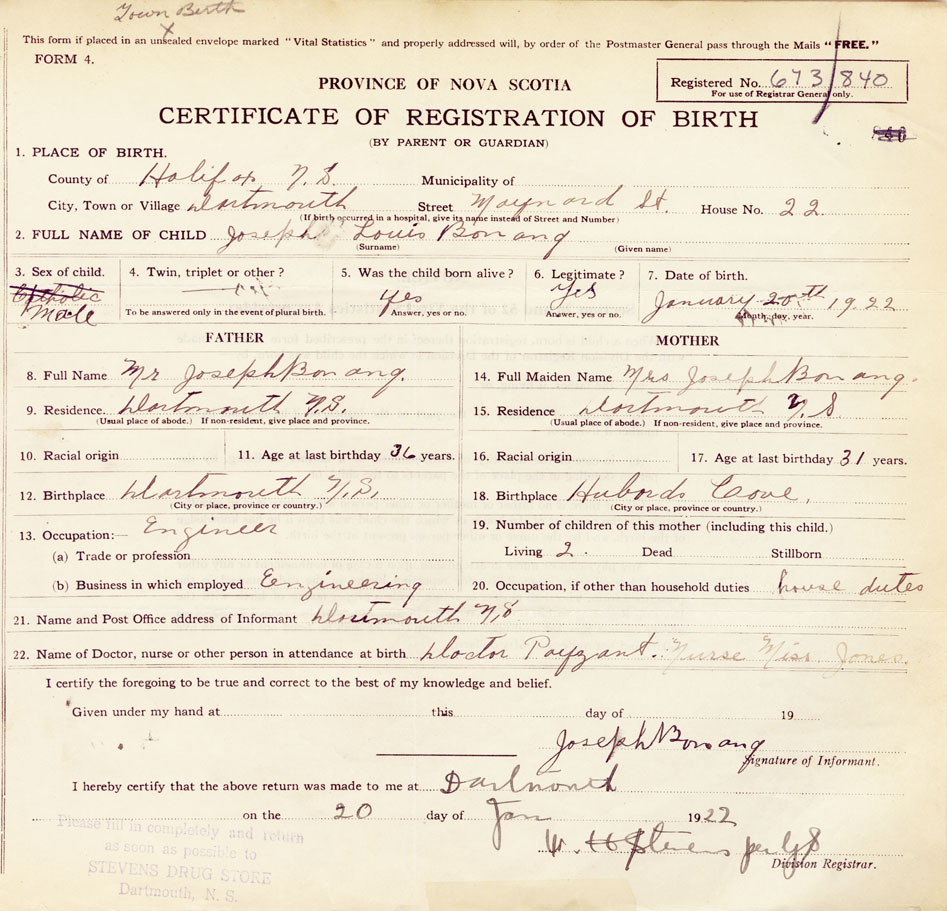 Town Birth
x
This form if placed in an unsealed envelope marked "Vital Statistics" and properly addressed will, by order of the Postmaster General pass through the Mails "FREE."
FORM 4.
PROVINCE OF NOVA SCOTIA
Registered No. 673/840
For use of Registrar General only.
CERTIFICATE OF REGISTRATION OF BIRTH
(BY PARENT OR GUARDIAN)
1. PLACE OF BIRTH.
County of Halifax N.S. Municipality of
City, Town or Village Dartmouth Street Maynard St. House No. 22
(If birth occurred in a hospital, give its name instead of Street and Number)
2. FULL NAME OF CHILD Joseph Louis Bonang
(Surname) (Given name)
3. Sex of child. 4. Twin, triplet or other? 5. Was the child born alive? 6. Legitimate? 7. Date of birth.
Catholic Yes Yes January 20th 1922
Male To be answered only in the event of plural birth. Answer, yes or no. Answer, yes or no. Month, day, year.
FATHER MOTHER
8. Full Name Mr Joseph Bonang. 14. Full Maiden Name Mrs Joseph Bonang.
9. Residence. Dartmouth N.S. 15. Residence Dartmouth N.S
(Usual place of abode.) If non-resident, give place and province. (Usual place of abode.) If non-resident, give place and province.
10. Racial origin 11. Age at last birthday 36 years. 16. Racial origin 17. Age at last birthday 31 years.
12. Birthplace Dartmouth N.S. 18. Birthplace Hubords Cove,
(City or place, province or country.) (City or place, province or country.)
13. Occupation:— Engineer 19. Number of children of this mother (including this child.)
(a) Trade or profession Living 2. Dead Stillborn
(b) Business in which employed Eengineering 20. Occupation, if other than household duties house dutes
21. Name and Post Office address of Informant Dartmouth N.S
22. Name of Doctor, nurse or other person in attendance at birth Doctor Payzant. Nurse Miss Jones.
I certify the foregoing to be true and correct to the best of my knowledge and belief.
Given under my hand at this day of 19
Joseph Bonang
Signature of Informant.
I hereby certify that the above return was made to me at Dartmouth
on the 20 day of Jan 1922
W. H. Stevens per
Division Registrar.
Please fill in completely and return
as soon as possible to
STEVENS DRUG STORE
Dartmouth, N. S.